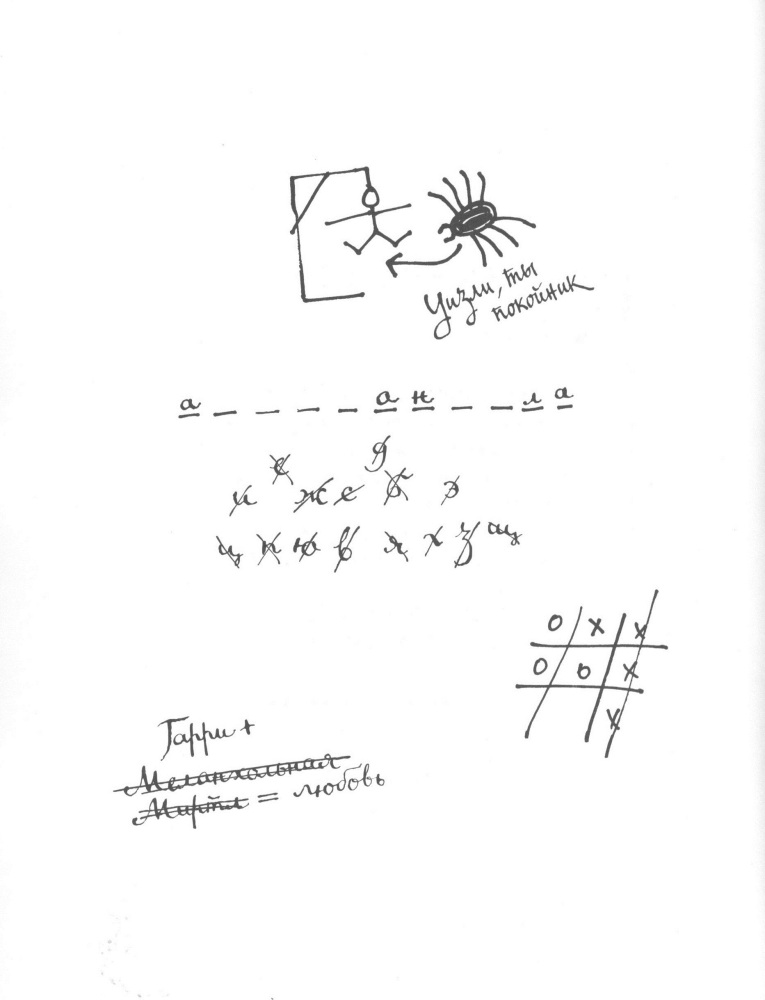 Уизли, ты
покойник
а _ _ _ _ а н _ _ л а
с д
и ж е б э
ц п ю в я х з щ
О Х Х
О О Х
Х
Гарри +
Меланхольная
Миртл = любовь